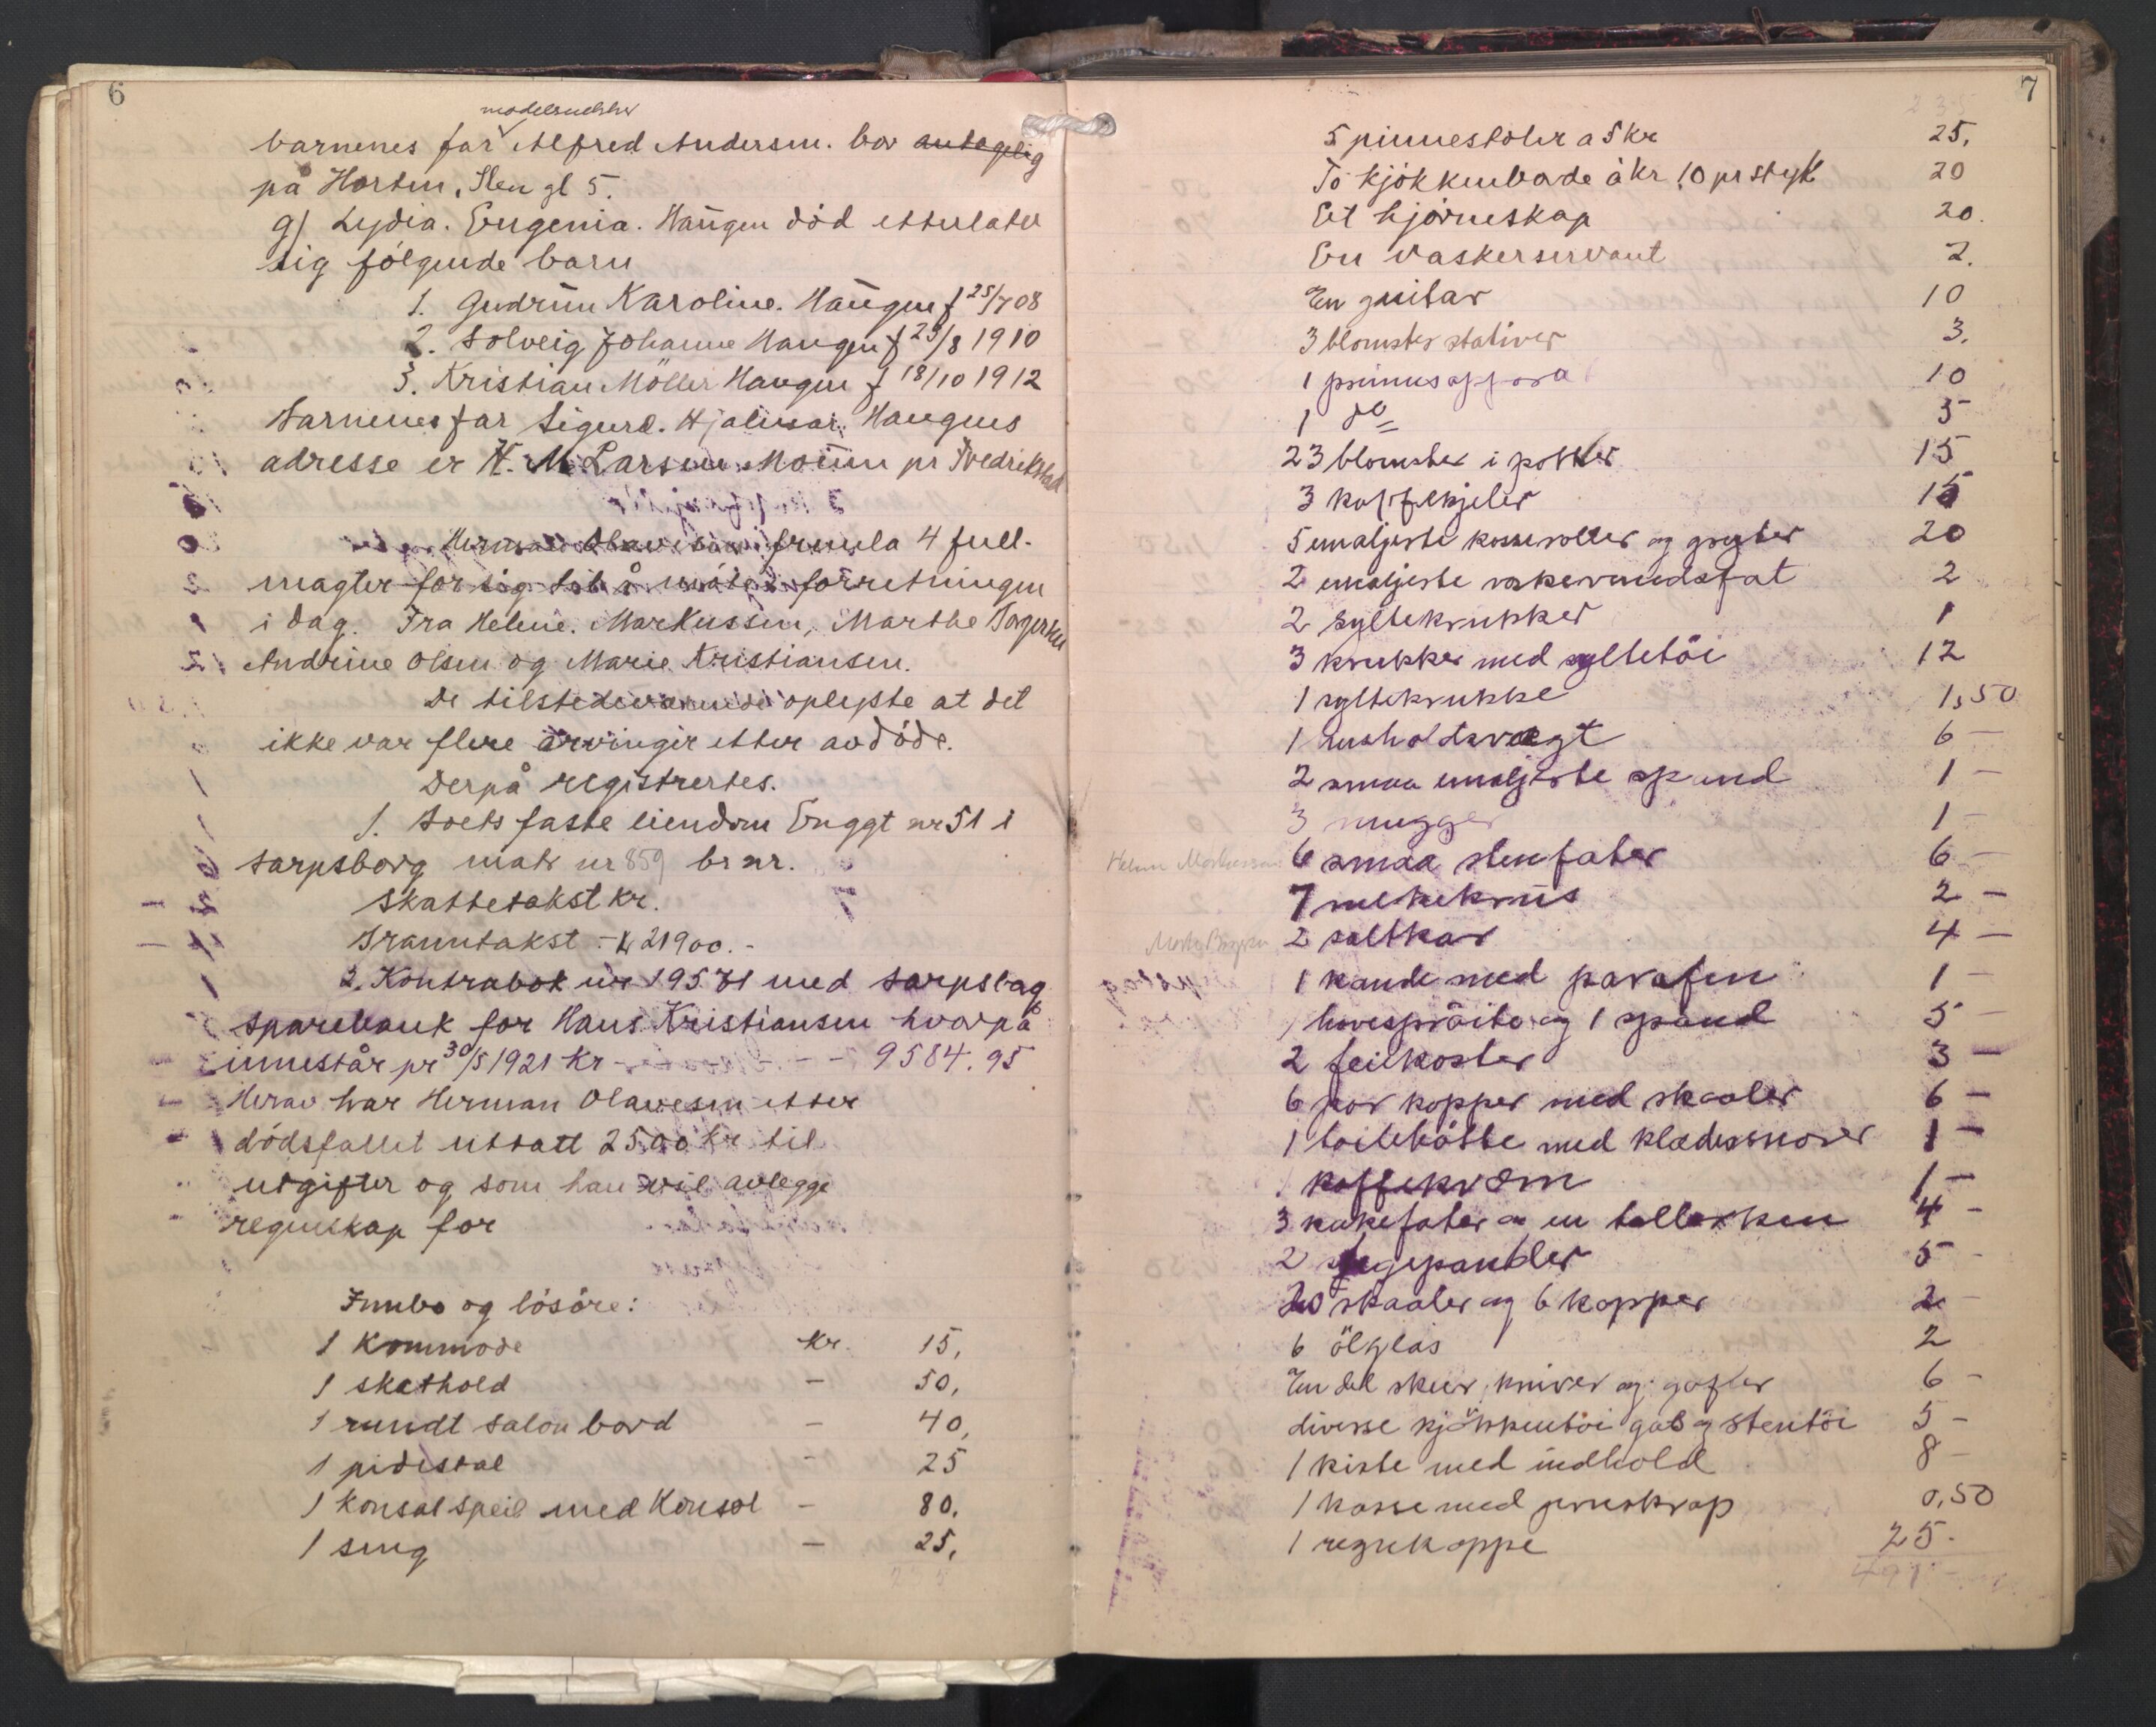 6
modelsnekker
barnenes far Alfred Andersen. bor antagelig
på Horten, Sten gt 5.
g) Lydia. Eugenia. Haugen död etterlater
sig fölgende barn
1. Gudrun Karoline. Haugen f 25/7 08
2. Solveig Johanne Haugen f 23/8 1910
3. Kristian Möller Haugen f 18/10 1912
Barnenes far Sigurd. Hjalmar. Haugens
adresse er H. M. Larsen Moum pr Fredrikstad
Herman Olavesen fremla 4 full-
magter for sig til å möte i forretningen
i dag. Fra Helene. Markussen, Marthe
Andrine Olsen og Marie Kristiansen.
De tilstedeværende oplyste at det
ikke var flere arvinger etter avdöde.
Derpå registrertes.
1. Boets faste eiendom Enggt nr 51 i
Sarpsborg matr nr 859 br nr.
Skattetakst kr.
Branntakst - k 21900.-
2. Kontrabok nr 19571 med Sarpsborg
Sparebank for Hans Kristiansen hvorpå
innestår pr 30/5 1921 kr - - - 9584.95
Herav har Herman Olavesen etter
dödsfallet uttatt 2500 kr til
utgifter og som han vil avlegge
regnskap for
Innbo og lösöre:
1 Kommode kr. 15,
1 skathold - 50,
1 rundt salon bord - 40,
1 pidestal - 25
1 Konsol speil med Konsol - 80.
1 seng - 25,
235
7
235
5 pinnestoler a 5 kr 25,
To kjökkenborde à kr. 10 pr styk 20
Et hjörneskap 20.
En vaskeservant 2.
En guitar 10
3 blomster stativer 3,
1 primusappara 10
1 do 5
23 blomster i potter 15
3 kaffekjeler 15
5 emaljerte kasseroller og gryter 20
2 emaljerte vaskevandsfat 2
2 syltekrukker 1
3 krukker med syltetöi 12
1 syltekrukke 1,50
1 husholdsvægt 6 -
2 smaa emaljerte spand 1 -
3 mugger 1 -
Helene Markussen 6 smaa stenfater 6 -
7 melkekrus 2 -
2 saltkar 4 -
1 kande med parafin 1 -
1 havespröite og 1 spand 5 -
2 feiekoster 3 -
6 par kopper med skaaler 6 -
1 toilebötte med klædessnorer 1 -
1 kaffekværn 1 -
3 kakefater og en tallerken 4 -
2 stegepander 5 -
20 skaaler og 6 kopper 2 -
6 ölglas 2
En del skeer, kniver og gafler 6 -
diverse kjökkentöi glas og stentöi 5 -
1 kiste med indhold 8 -
1 kasse med jernskrap 0,50
1 regnekappe 25.
491 -